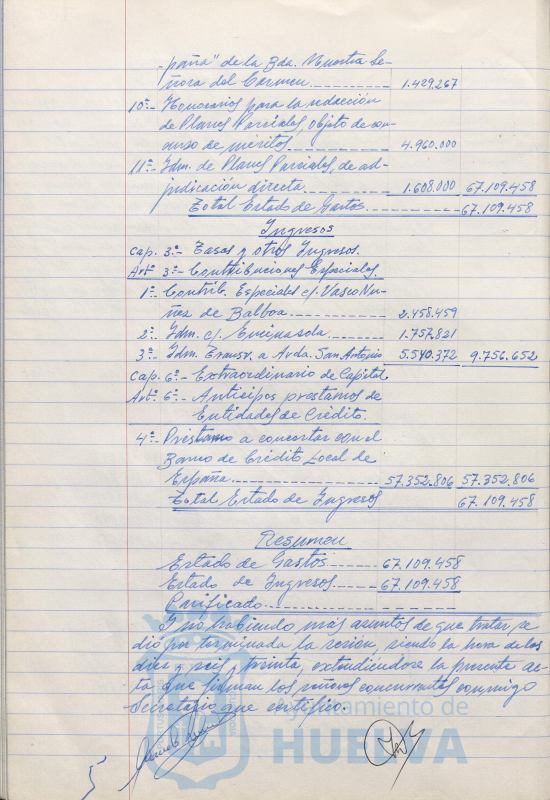 -paña" de la Bda. Nuestra Se-
ñora del Carmen 1.429.267
10º- Honorarios para la redacción
de Planes Parciales, objeto de con-
curso de méritos 4.960.000
11º- Idm. de Planes Parciales, de ad-
judicación directa 1.608.000 67.109.458
Total Estado de Gastos 67.109.458
Ingresos
Cap. 3º- Tasas y otros Ingresos.
Artº 3º- Contribuciones Especiales.
1º Contrib. Especiales c/. Vasco Nu-
ñez de Balboa 2.458.459
2º- Idm. c/. Encinasola 1.757.821
3º- Idm. Transv. a Avda. San Antonio 5.540.372 9.756.652
Cap. 6º- Extraordinario de Capital
Artº 6º- Anticipos prestamos de
Entidades de Crédito.
4º- Préstamo a concertar con el
Banco de Crédito Local de
España 57.352.806 57.352.806
Total Estado de Ingresos 67.109.458
Resumen
Estado de Gastos 67.109.458
Estado de Ingresos 67.109.458
Y no habiendo más asuntos de que tratar se
dió por terminada la sesión, siendo la hora de las
diez y seis y treinta, extendiendose la presente ac-
ta, que firman los señores concurrentes conmigo
Secretario que certifico.
Ayuntamiento de
HUELVA